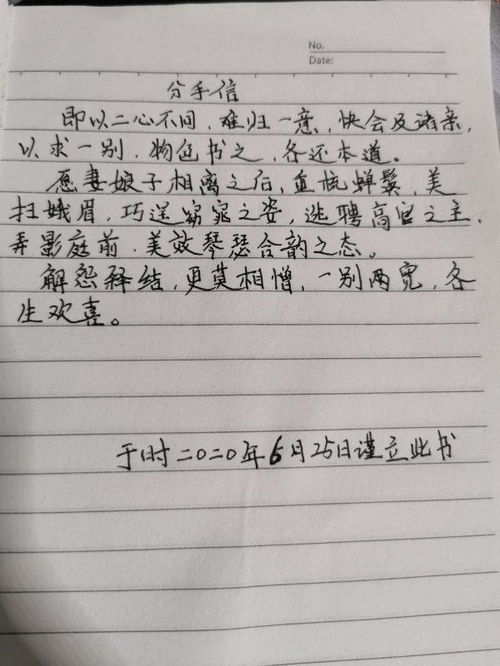 No.
Date:
分手信
即以二心不同，难归一意，快会及诸亲，
以求一别，物色书之，各还本道。
愿妻娘子相离之后，重梳蝉鬓，美
扫娥眉，巧逞窈窕之姿，选聘高官之主，
弄影庭前，美效琴瑟合韵之态。
解怨释结，更莫相憎，一别两宽，各
生欢喜。
于时二〇二〇年6月25日谨立此书